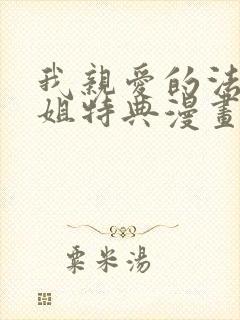 我親愛的法
姐特典漫畫
粟米湯